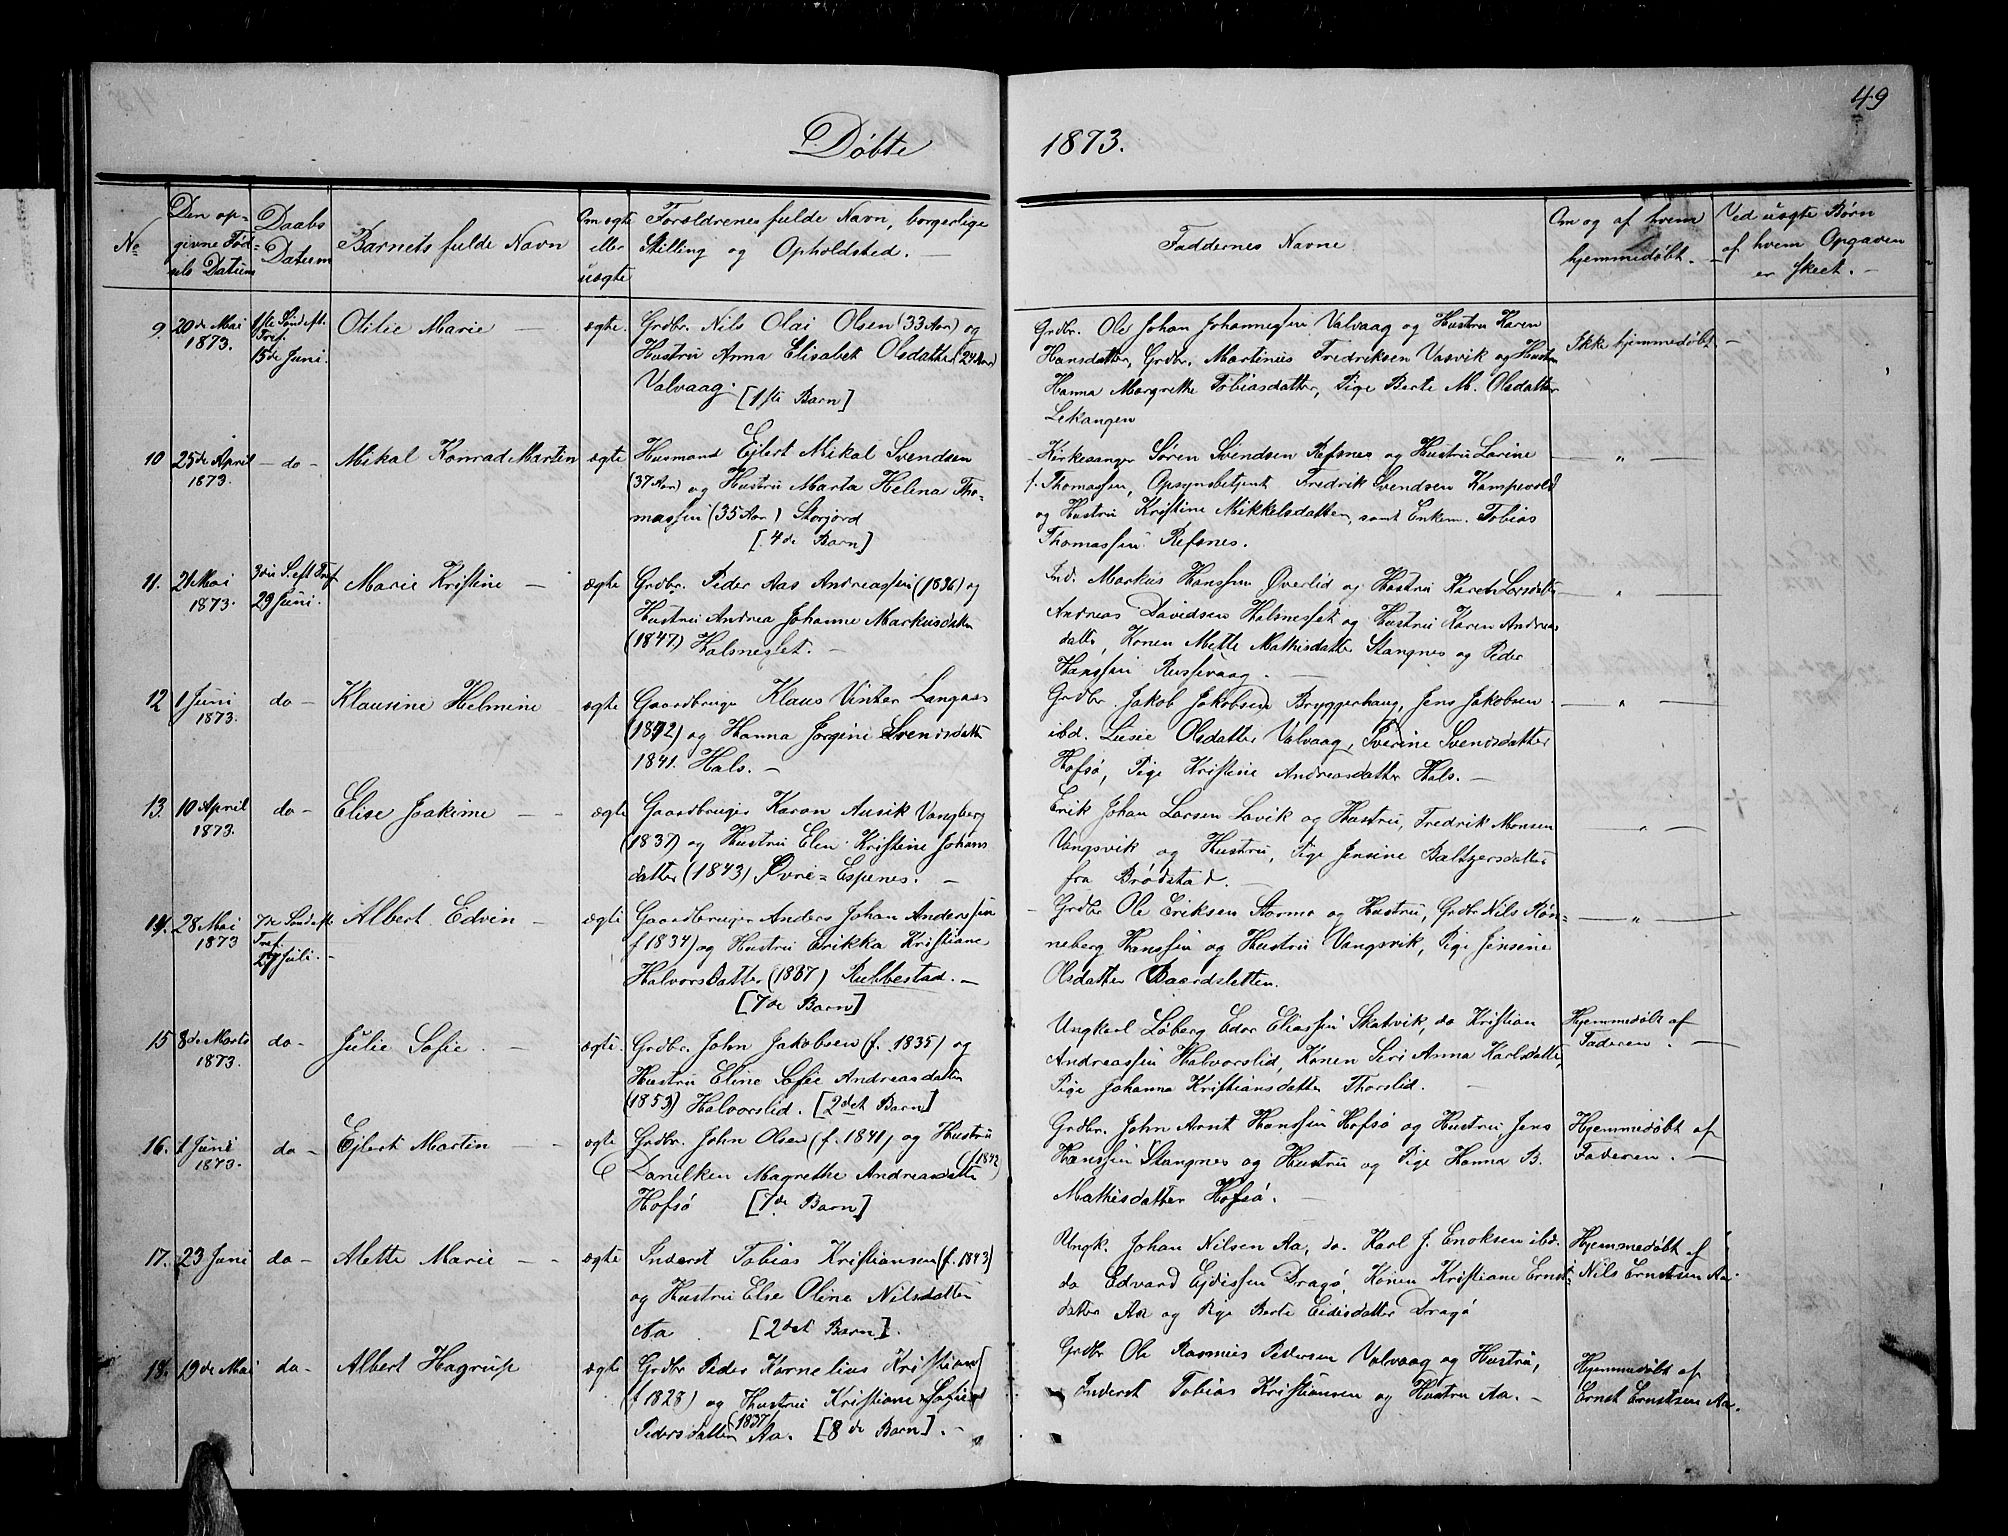 49
Døbte 1873.
№
Den op-
givne Fød-
sels Datum
Daabs
Datum
Barnets fulde Navn
Om ægte
eller
uægte
Forældrenes fulde Navn, borgerlige
Stilling og Opholdsted. —
Faddernes Navne
Om og af hvem
hjemmedøbt. —
Ved uægte Børn
af hvem Opgaven
er skeet. —
9. 20de Mai
1873.
1ste Sønd eft.
Tref.
15de Juni.
Otilie Marie —
ægte.
Grdbr. Nils Olai Olsen (33 Aar) og
Hustru Anna Elisabet Olsdatter (24 Aar)
Valvaag. [1ste Barn]
Grdbr. Ole Johan Johannessen Valvaag og Hustru Karen
Hansdatter, Grdbr. Martinus Fredriksen Vasvik og Hustru
Hanna Margrethe Tobiasdatter, Pige Berte M. Olsdatter
Lekangen
Ikke hjemmedøbt —
10 25de April
1873.
— do —
Mikal Konrad Martin
ægte
Husmand Ejlert Mikal Svendsen
(37 Aar) og Hustru Marta Helena Tho-
massen (35 Aar) Storjord
[4de Barn]
Kirkesanger Søren Svendsen Refsnes og Hustru Larine
f. Thomassen, Opsynsbetjent Fredrik Svendsen Kampevold
og Hustru Kristine Mikkelsdatter, samt Enkem. Tobias
Thomassen Refsnes.
— " —
11. 21 Mai
1873.
3die S. eft Tref
29 Juni.
Marie Kristine —
ægte
Grdbr. Peder Aas Andreassen (1836) og
Hustru Andrea Johanne Markusdatter
(1847) Halsneslet. —
Ind. Markus Hanssen Øverlid og Hustru Karen Larsdatter
Andreas Davidsen Halsneslet og Hustru Karen Andreas
datter, Konen Mette Mathisdatter Stangnes og Peder
Hanssen Russevaag. —
— " —
12 1 Juni
1873.
do —
Klausine Helmine —
ægte
Gaardbruger Klaus Vinter Langaas
(1842) og Hanna Jørgine Svendsdatter
1841. Hals. —
Grdbr. Jakob Jakobsen Bryggerhaug, Jens Jakobsen
ibd. Lusie Olsdatter Valvaag, Sverine Svendsdatter
Hofsø, Pige Kristine Andreasdatter Hals. —
— " —
13. 10 April
1873.
do —
Elise Joakime —
ægte
Gaardbruger Karon Ausik Vangberg
(1837) og Hustru Elen Kristine Johans
datter (1843) Øvre = Espenes. —
Erik Johan Larsen Lavik og Hustru, Fredrik Monsen
Vangsvik og Hustru, Pige Jensine Baltzersdatter
fra Brødstad. —
— " —
14. 28 Mai
1873
7de Sønd eft
Tref.
27 Juli. —
Albert Edvin —
ægte
Gaardbruger Anders Johan Anderssen
f 1834) og Hustru Erikka Kristiane
Halvorsdatter (1837) Rubbestad. —
[7de Barn]
Grdbr Ole Eriksen Stormo og Hustru, Grdbr Nils Røn-
neberg Hanssen og Hustru Vangsvik, Pige Jensine
Olsdatter Baardsletten.
— " —
15 8de Marts
1873.
do —
Julie Sofie. —
ægte.
Grdbr. John Jakobsen (f. 1835) og
Hustru Eline Sofie Andreasdatter
(1853) Halvorslid. [2det Barn]
Ungkarl Løberg Edor Eliassen Skatvik, do Kristian
Andreassen Halvorslid, Konen Seri Anna Karlsdatter,
Pige Johanna Kristiansdatter Thorslid. —
Hjemmedøbt af
Faderen. —
16. 1 Juni
1873.
do —
Ejlert Martin —
ægte
Grdbr. John Olsen (f. 1841) og Hustru
Danilken Magrethe Andreasdatter (f 1842)
Hofsø [7de Barn]
Grdbr. John Arnt Hanssen Hofsø og Hustru Jens
Hanssen Stangnes og Hustru og Pige Hanna B.
Mathisdatter Hofsø. —
Hjemmedøbt af
Faderen. —
17. 23 Juni
do —
Alette Marie —
ægte
Inderst Tobias Kristiansen (f. 1843)
og Hustru Else Oline Nilsdatter
Aa [2det Barn].
Ungk. Johan Nilsen Aa, do. Karl J. Enoksen ibd.
do Edvard Ejdissen Dragø, Konen Kristiane Ernst-
datter Aa og Pige Berte Eidisdatter Dragø
Hjemmedøbt af
Nils Ernstsen Aa.
18. 19de Mai
do —
Albert Hagrup —
ægte
Grdbr Peder Kornelius Kristian
(f 1828) og Hustru Kristiane Sofie
Pedersdatter (1837) Aa. [8de Barn]. —
Grdbr Ole Rasmus Pedersen Valvaag og Hustru,
Inderst Tobias Kristiansen og Hustru Aa. —
Hjemmedøbt af
Ernst Ernstsen Aa.